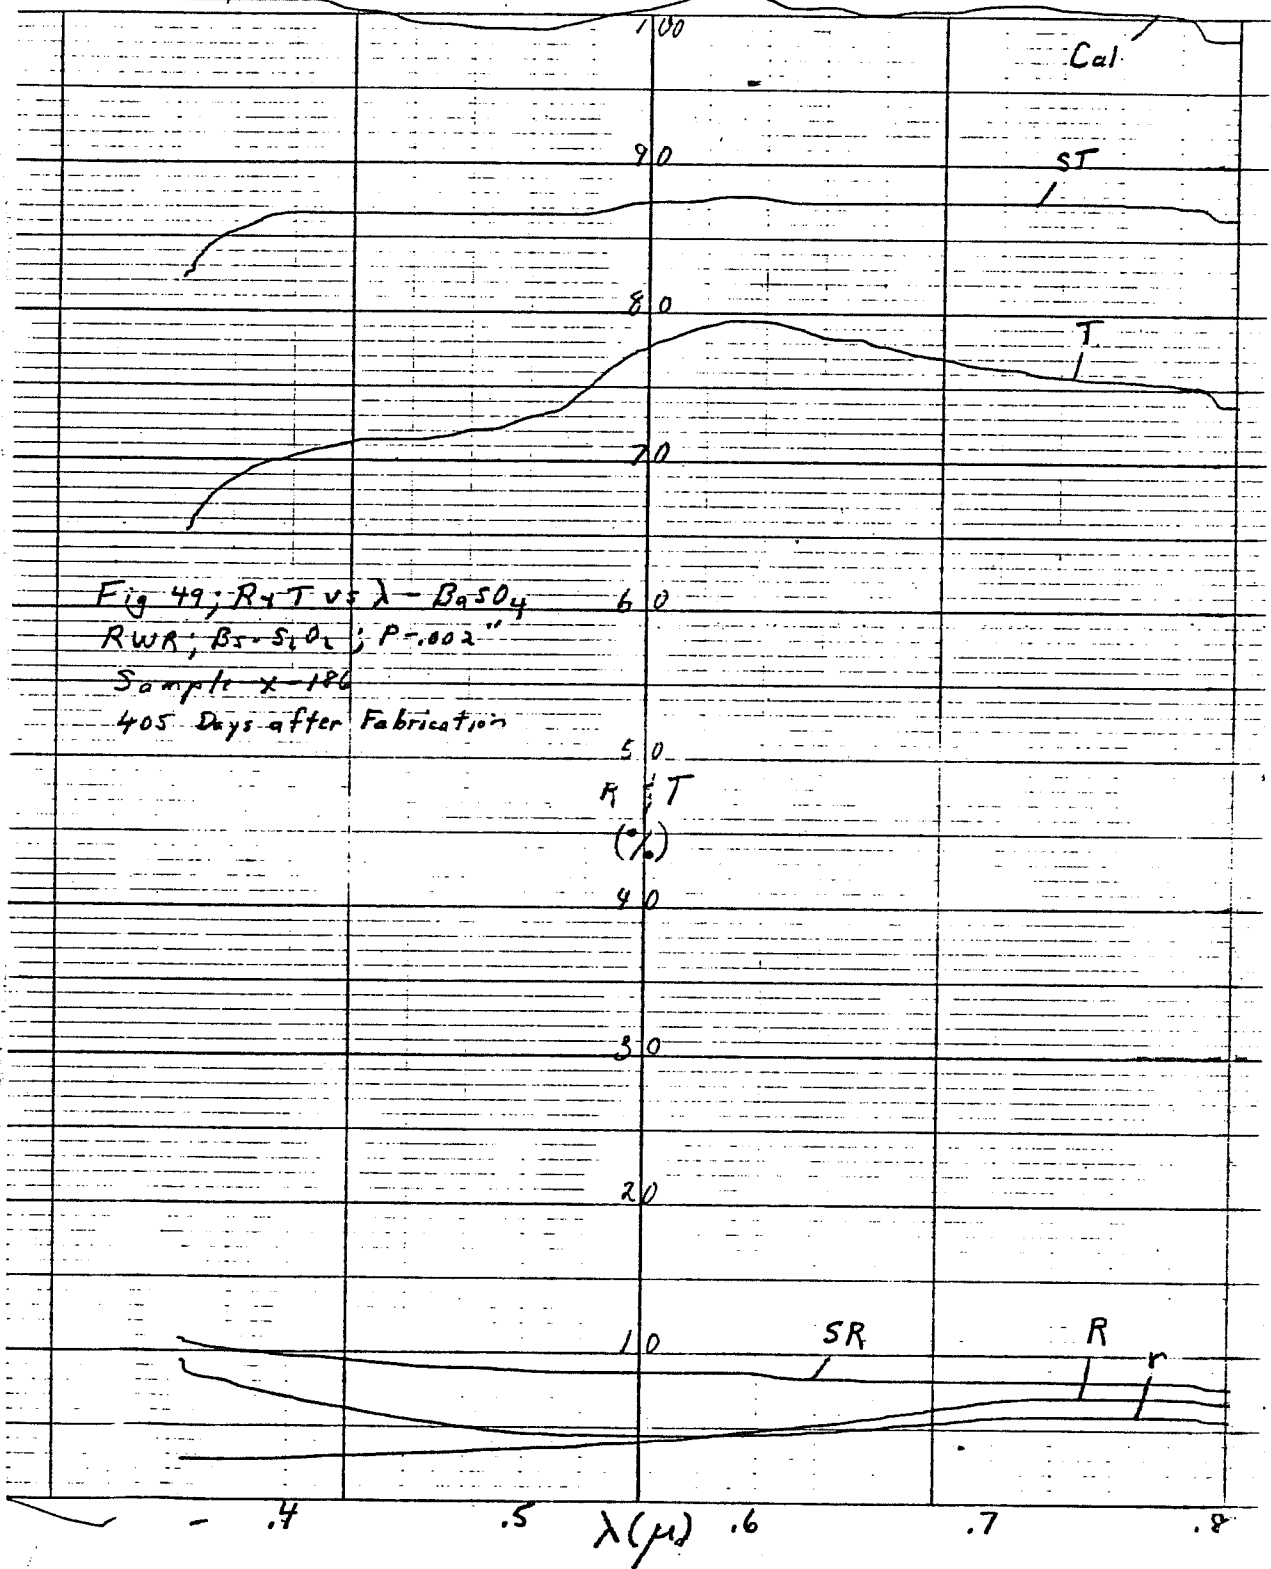 100
Cal.
90
ST
80
T
70
Fig 49; R & T vs λ - BaSO4
60
RWR; BS-SiO2; P-.002"
Sample X-186
405 Days after Fabrication
50
R & T
(%)
40
30
20
10
SR
R
r
.4 .5 λ(μ) .6 .7 .8